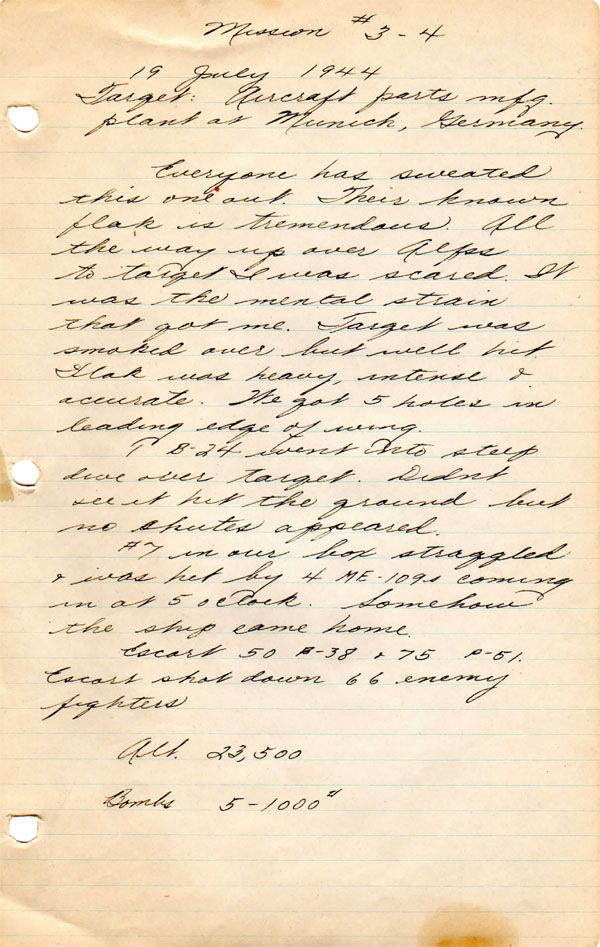 Mission #3-4
19 July 1944
Target: Aircraft parts mfg.
plant at Munich, Germany.
Everyone has sweated
this one out. Their known
flak is tremendous. All
the way up over Alps
to target I was scared. It
was the mental strain
that got me. Target was
smoked over but well hit.
Flak was heavy, intense &
accurate. We got 5 holes in
leading edge of wing.
1 B-24 went into steep
dive over target. Didnt
see it hit the ground but
no chutes appeared.
#7 in our box straggled
& was hit by 4 ME-109s coming
in at 5 oclock. Somehow
the ship came home.
Escort 50 P-38 & 75 P-51.
Escort shot down 66 enemy
fighters
Alt. 23,500
Bombs 5-1000#